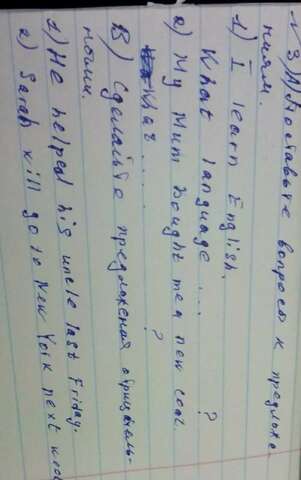 №3 А) Поставьте вопросы к предложе-
ниям.
1) I learn English.
What language .... ?
2) My Mum bought me a new coat.
What .... ?
В) Сделайте предложения отрицатель-
ными.
1) He helped his uncle last Friday.
2) Sarah will go to New York next week